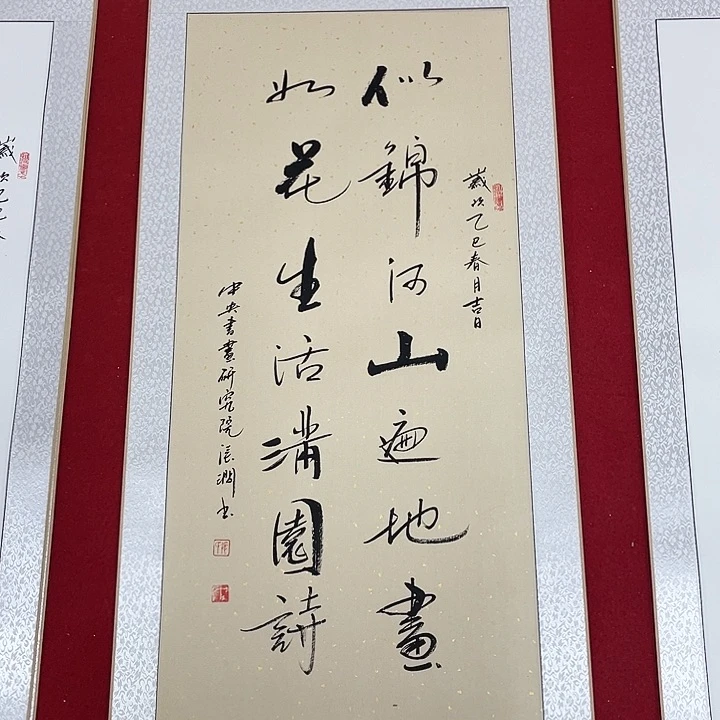 歲次乙巳春月吉日
似錦河山遍地畫
如花生活滿園詩
中央書畫研究院張澗書
歲次乙巳